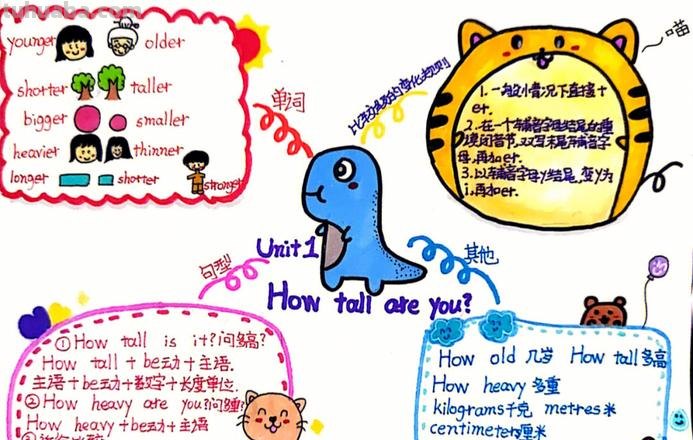 tuhuaba.com
younger older
shorter taller
bigger smaller
heavier thinner
longer shorter
stronger
单词
比较级的变化规则
喵
1.一般情况下直接+
er.
2.在一个辅音字母结尾的重
读闭音节,双写末尾辅音字
母,再加er.
3.以辅音字母y结尾,变y为
i,再加er.
Unit 1
How tall are you?
句型
其他
①How tall is it?问多高?
How tall+be动+主语.
主语+be动+数字+长度单位.
②How heavy are you?问多重?
How heavy+be动+主语
How old 几岁 How tall多高
How heavy 多重
kilograms千克 metres米
centimeter厘米